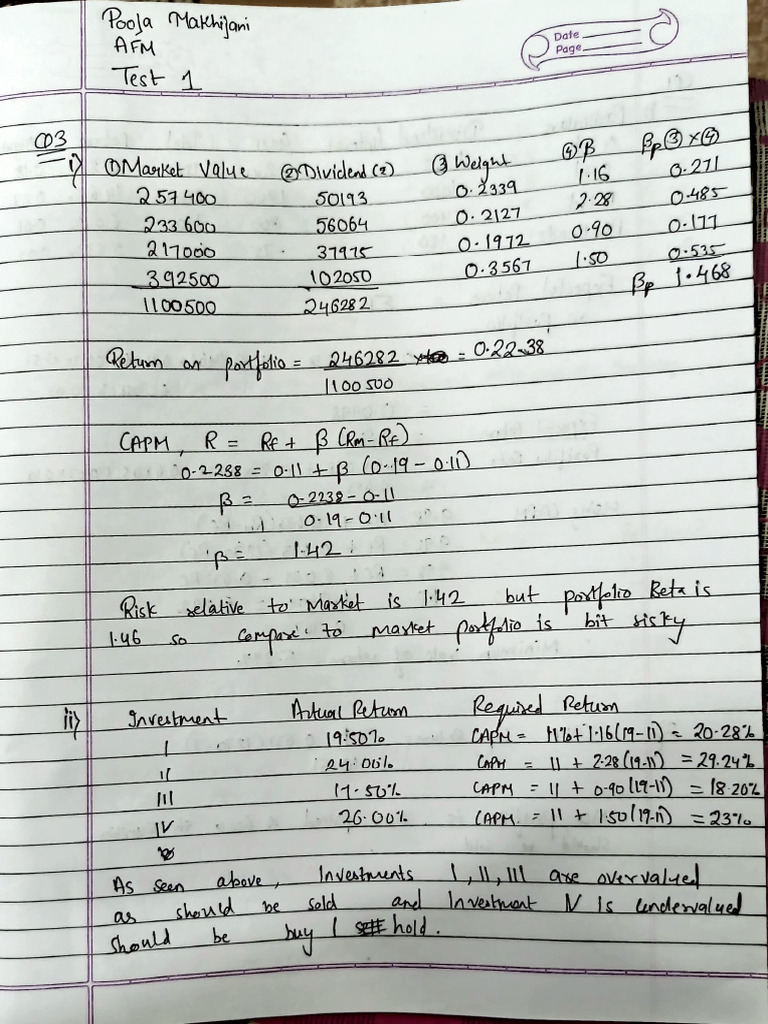 Pooja Makhijani
AFM
Test 1
Date
Page
Q3
i) ① Market Value ② Dividend (2) ③ Weight ④ β βp ③ × ④
257400 50193 0.2339 1.16 0.271
233600 56064 0.2127 2.28 0.485
217000 37975 0.1972 0.90 0.177
392500 102050 0.3567 1.50 0.535
1100500 246282 βp 1.468
Return on portfolio = 246282 = 0.22.38
1100500
CAPM, R = Rf + β (Rm-Rf)
0.2238 = 0.11 + β (0.19 - 0.11)
β = 0.2238 - 0.11
0.19 - 0.11
β = 1.42
Risk relative to Market is 1.42 but portfolio Beta is
1.46 so compare to market portfolio is bit risky
ii) Investment Actual Return Required Return
I 19.50% CAPM = 11% + 1.16(19-11) = 20.28%
II 24.00% CAPM = 11 + 2.28 (19-11) = 29.24%
III 17.50% CAPM = 11 + 0.90 (19-11) = 18.20%
IV 26.00% CAPM = 11 + 1.50(19-11) = 23%
As seen above, Investments I, II, III are overvalued
as should be sold and Investment IV is undervalued
should be buy / hold.